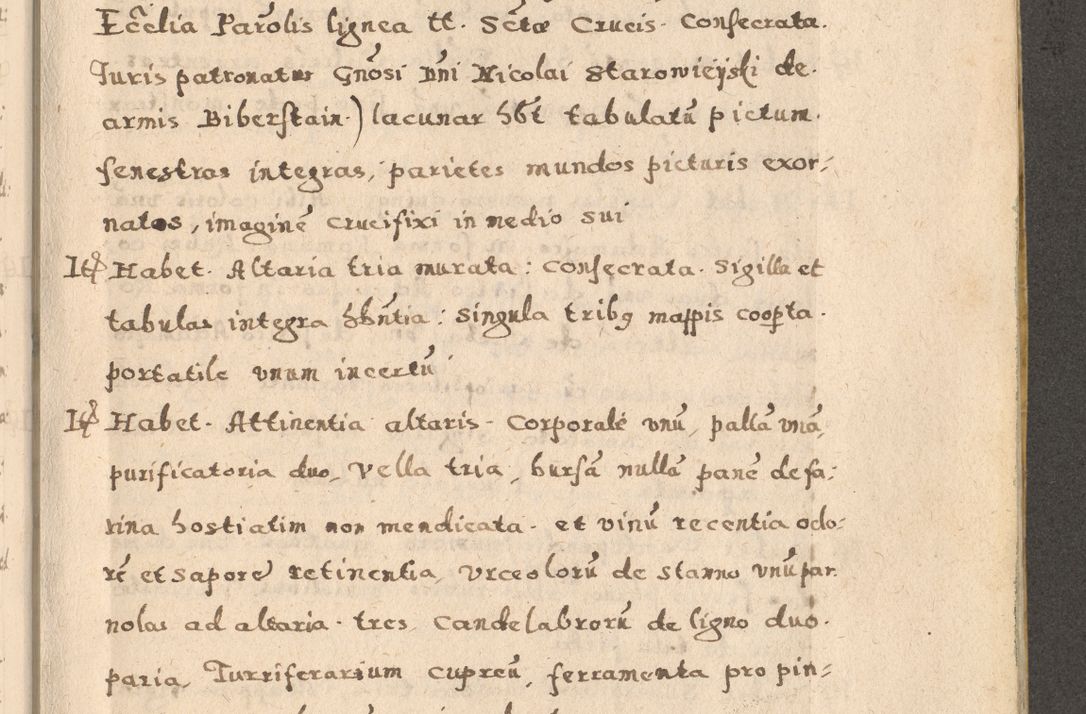 Eccłia Parōlis lignea tt. Sctæ Crucis. Consecrata.
Juris patronatus Gnōsi Dni Nicolai Starowieÿski de.
armis Biberstain.) lacunar hбt tabulatū pictum.
fenestras integras, parietes mundos picturis exor-
natos, imaginē crucifixi in medio sui
Itē Habet. Altaria tria murata: consecrata. sigilla et
tabulas integra hбntia: singula tribꝰ mappis cooꝑta.
portatile vnum incertū
Itē Habet. Attinentia altaris. Corporalē vnū, pallā vnā,
purificatoria duo, Vella tria, bursā nullā panē de fa-
rina hostiatim non mendicata. et vinū recentia odo-
rē et saporē retinentia, Vrceolorū de stanno vnū par.
nolas ad altaria. tres, candelabrorū de ligno duo.
paria, Turriferarium cupreū, ferramenta pro pin-